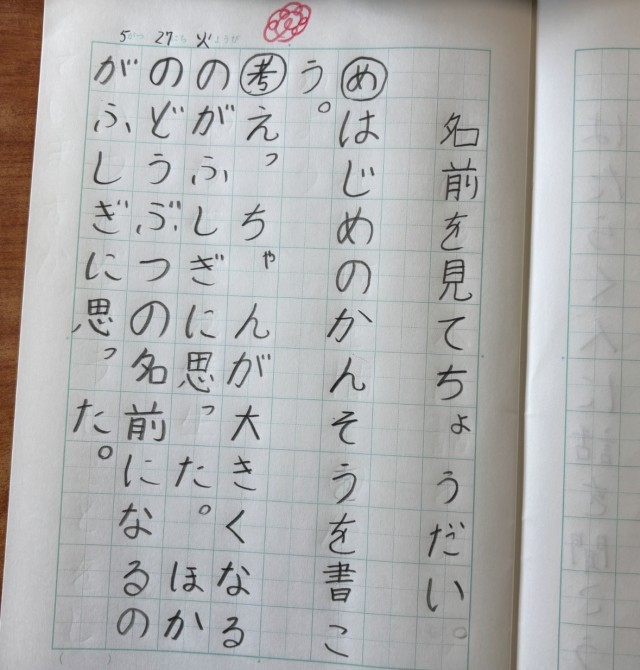 5がつ 27にち 火ようび
名前を見てちょうだい。
めはじめのかんそうを書こ
う。
考えっちゃんが大きくなる
のがふしぎに思った。ほか
のどうぶつの名前になるの
がふしぎに思った。